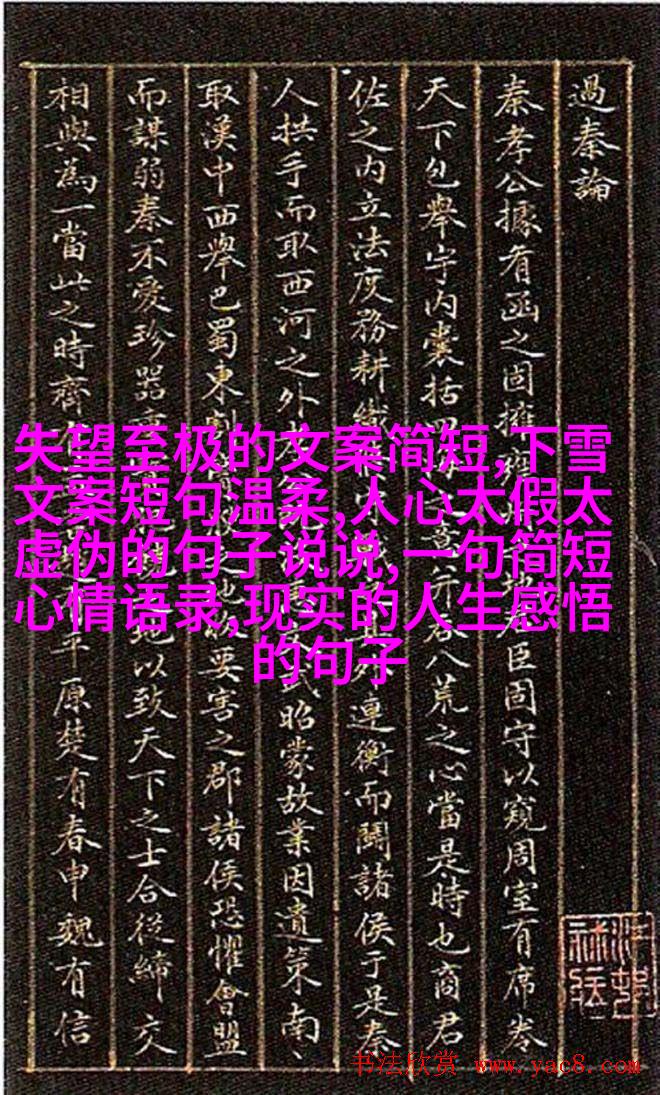 過秦論
秦孝公據有函之固擁臣固守以窺周室有席卷
天下包舉宇內囊括八荒之心當是時也商君
佐之內立法度務耕織外連衡而鬭諸侯于是秦
人拱手而取西河之外武昭蒙故業因遺策南、
取漢中西舉巴蜀東割要害之郡諸侯恐懼會盟
而謀弱秦不愛珍器地以致天下之士合從締交
相與為一當此之時齊平原楚有春申魏有信
失望至极的文案简短,下雪
文案短句温柔,人心太假太
虚伪的句子说说,一句简短
心情语录,现实的人生感悟
的句子
书法欣赏 www.yac8.com